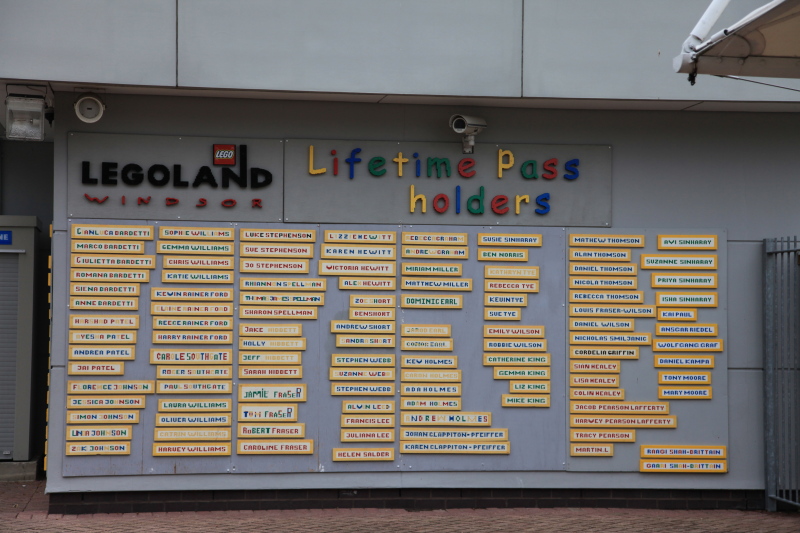 LEGO
LEGOLAND
WINDSOR
Lifetime Pass
holders
GIANLUCA BARDETTI
MARCO BARDETTI
GIULIETTA BARDETTI
ROMANA BARDETTI
SIENA BARDETTI
ANNE BARDETTI
PATEL
PATEL
ANDREA PATEL
JAI PATEL
FLORENCE JOHNSON
JESSICA JOHNSON
SIMON JOHNSON
LINDA JOHNSON
ZOE JOHNSON
SOPHIE WILLIAMS
GEMMA WILLIAMS
CHRIS WILLIAMS
KATIE WILLIAMS
KEVIN RAINERFORD
RAINERFORD
REECE RAINERFORD
HARRY RAINERFORD
CAROLE SOUTHGATE
ROGER SOUTHGATE
PAUL SOUTHGATE
LAURA WILLIAMS
OLIVER WILLIAMS
WILLIAMS
HARVEY WILLIAMS
LUKE STEPHENSON
SUE STEPHENSON
JO STEPHENSON
RHIANNON SPELLMAN
THOMAS JAMES SPELLMAN
SHARON SPELLMAN
JAKE HIBBETT
HOLLY HIBBETT
JEFF HIBBETT
SARAH HIBBETT
JAMIE FRASER
TONI FRASER
ROBERT FRASER
CAROLINE FRASER
LIZZIE HEWITT
KAREN HEWITT
VICTORIA HEWITT
ALEX HEWITT
ZOE SHORT
BEN SHORT
ANDREW SHORT
SHORT
STEPHEN WEBB
SUZANNE WEBB
STEPHEN WEBB
ALVIN LEE
FRANCIS LEE
JULIANA LEE
HELEN SALDER
REBECCA GRAHAM
ANDREW GRAHAM
MIRIAM MILLER
MATTHEW MILLER
DOMINIC EARL
EARL
EARL
KEV HOLMES
HOLMES
ADA HOLMES
ADAM HOLMES
ANDREW HOLMES
JOHAN CLAPPITON-PFEIFFER
KAREN CLAPPITON-PFEIFFER
SUSIE SINHARAY
BEN NORRIS
TYE
REBECCA TYE
KEVIN TYE
SUE TYE
EMILY WILSON
ROBBIE WILSON
CATHERINE KING
GEMMA KING
LIZ KING
MIKE KING
MATHEW THOMSON
ALAN THOMSON
DANIEL THOMSON
NICOLA THOMSON
REBECCA THOMSON
LOUIS FRASER-WILSON
DANIEL WILSON
NICHOLAS SMILJANIC
CORDELIA GRIFFIN
SIAN HEALEY
LISA HEALEY
COLIN HEALEY
JACOB PEARSON LAFFERTY
HARVEY PEARSON LAFFERTY
TRACY PEARSON
MARTIN.L
AVI SINHARAY
SUZANNE SINHARAY
PRIYA SINHARAY
ISHA SINHARAY
KAI PAUL
ANSGAR RIEDEL
WOLFGANG GRAF
DANIEL KAMPA
TONY MOORE
MARY MOORE
RAAGI SHAH-BRITTAIN
GAARGI SHAH-BRITTAIN